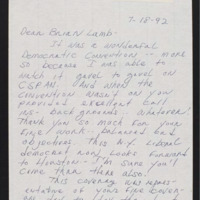 7-18-92
Dear Brian Lamb:
It was a wonderful
Democratic Convention -- more
so because I was able to
watch it gavel to gavel on
CSPAN. And when the
convention wasn't on you
provided excellent call
ins - back grounds - whatever!
Thank you so much for your
fine work - balanced but
objective. This N.Y. Liberal
democrat now looks forward
to Houston - I'm sure you'll
come thru there also!
This coverage was repres-
entative of your fine cover-